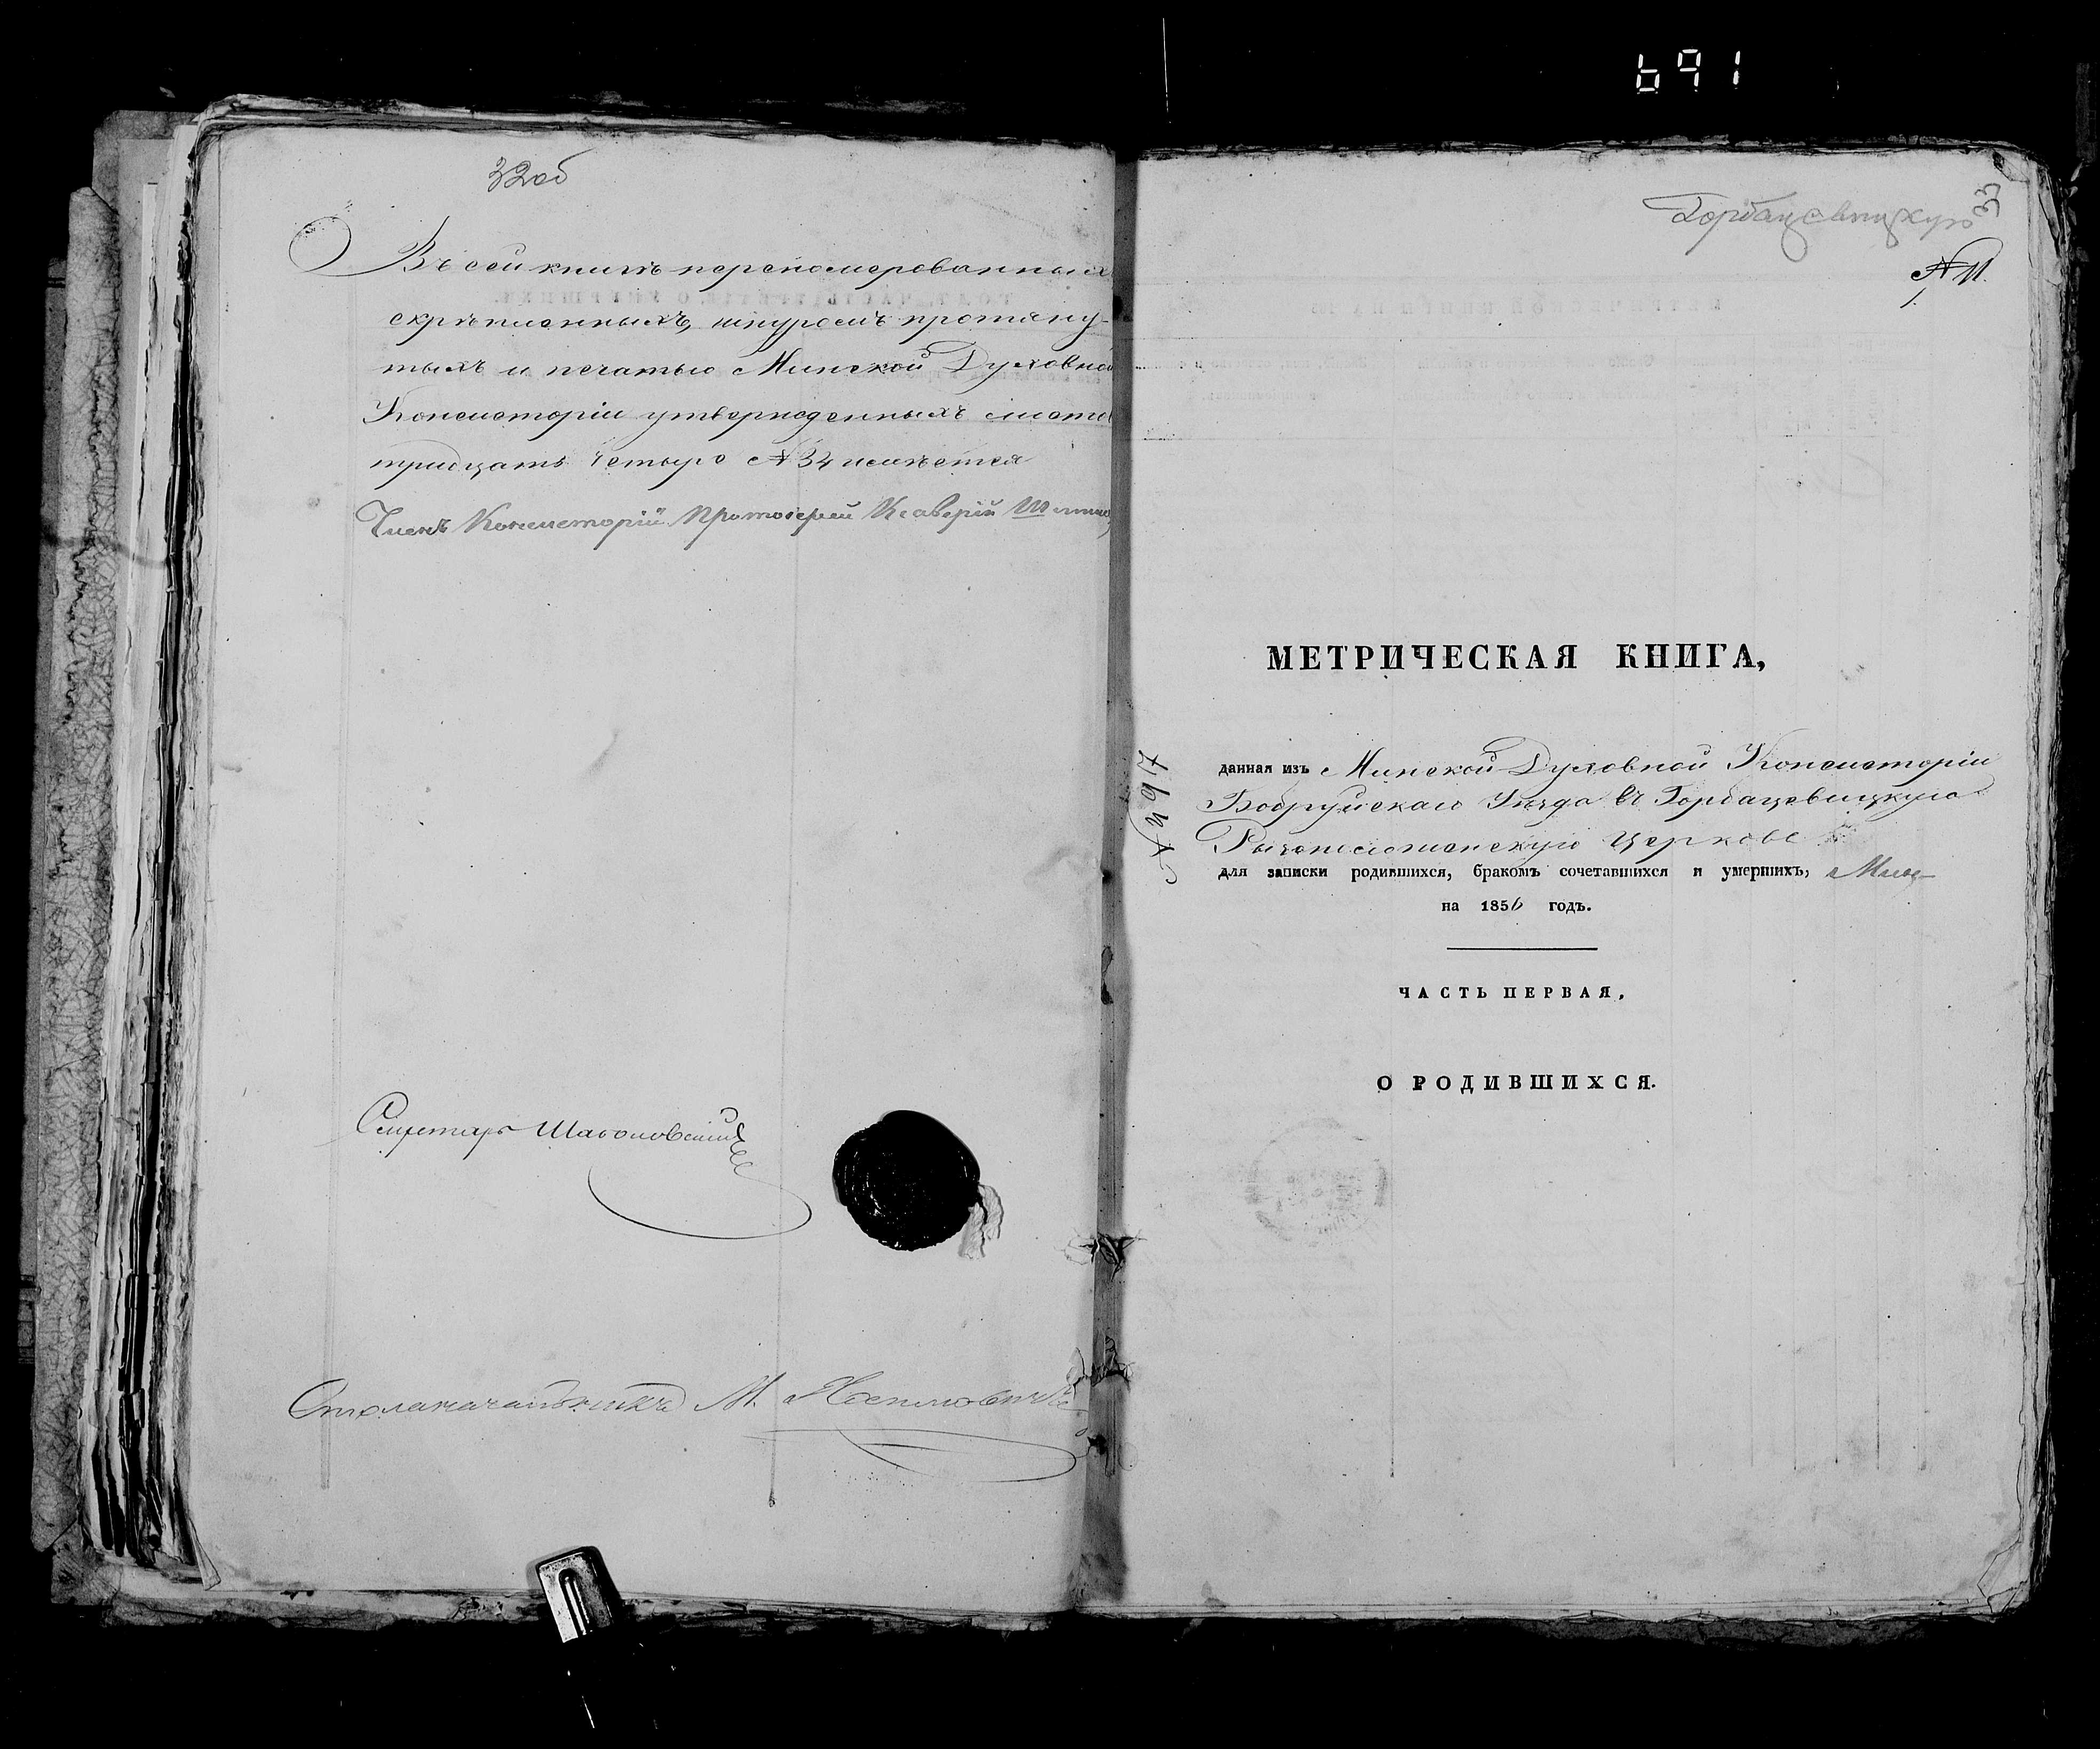 691
32об
Въ сей книгѣ переномерованныхъ
скрѣпленныхъ, шнуромъ протяну-
тыхъ и печатью Минской Духовной
Консисторіи утвержденныхъ листо
тридцать четыре № 34 имѣется
Членъ Консисторіи Протоіерей
Секретарь
Столоначальникъ М.
33
Горбацевицкую
№ 11.
1.
МЕТРИЧЕСКАЯ КНИГА,
данная изъ Минской Духовной Консисторіи
Бобруйскаго Уѣзда въ Горбацевицкую
церковь
для записки родившихся, бракомъ сочетавшихся и умершихъ,
на 1856 годъ.
ЧАСТЬ ПЕРВАЯ,
О РОДИВШИХСЯ.